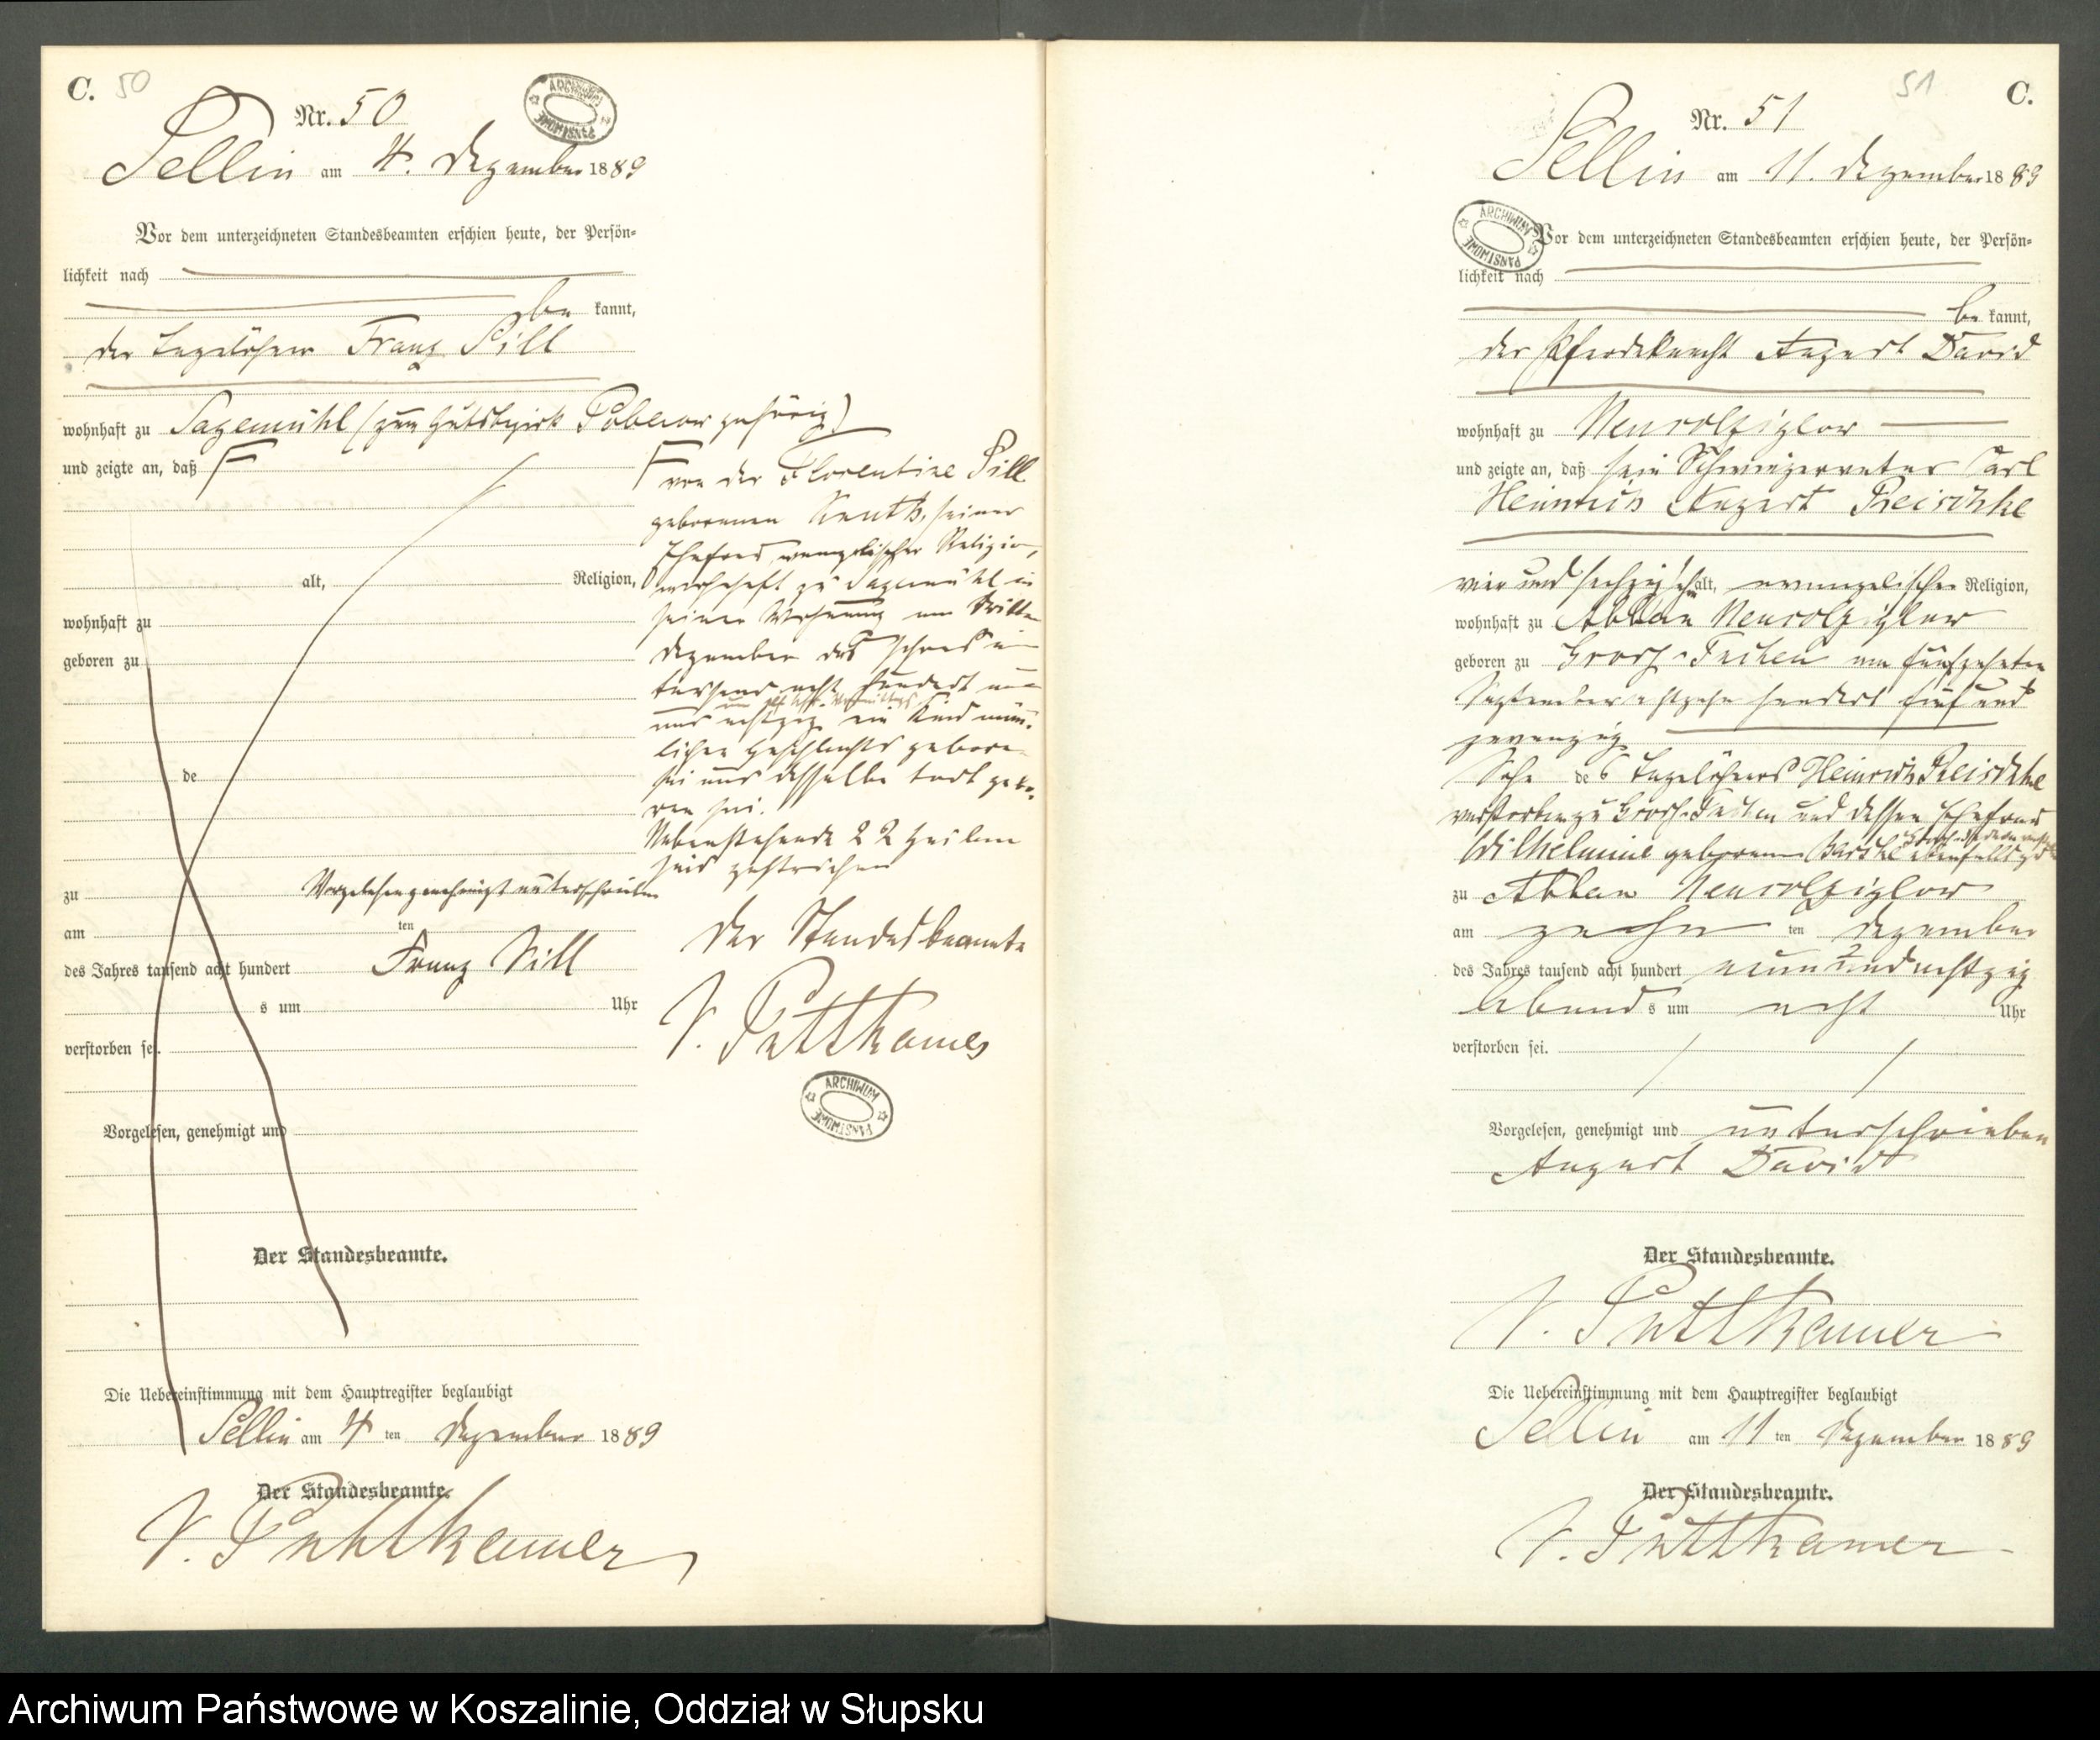 C. 50
Nr. 50
ARCHIWUM PAŃSTWOWE
Sellin am 4. Dezember 1889
Vor dem unterzeichneten Standesbeamten erschien heute, der Persön-
lichkeit nach
be kannt,
der Tagelöhner Franz Sill
wohnhaft zu Sagemühl (zum Gutsbezirk Poberow gehörig)
und zeigte an, daß
alt, Religion,
wohnhaft zu
geboren zu
de
zu
am ten
des Jahres tausend acht hundert
s um Uhr
verstorben sei.
Vorgelesen, genehmigt und
von der Florentine Sill
geborenen, seiner
Ehefrau, evangelischer Religion,
wohnhaft zu Sagemühl in
seiner Wohnung am dritten
Dezember des Jahres ein
tausend acht hundert neun
und achtzig ein Kind männ-
lichen Geschlechts geboren
sei und dasselbe todt gebo-
ren sei.
Nebenstehende 22 Zeilen
sind gestrichen
Vorgelesen genehmigt unterschrieben
Franz Sill
Der Standesbeamte
v. Puttkamer
ARCHIWUM PAŃSTWOWE
Der Standesbeamte.
Die Uebereinstimmung mit dem Hauptregister beglaubigt
Sellin am 4 ten Dezember 1889
Der Standesbeamte.
v. Puttkamer
51 C.
Nr. 51
Sellin am 11. Dezember 1889
ARCHIWUM PAŃSTWOWE
Vor dem unterzeichneten Standesbeamten erschien heute, der Persön-
lichkeit nach
be kannt,
der Pferdeknecht August David
wohnhaft zu Neukolziglow
und zeigte an, daß sein Schwiegervater Carl
Heinrich August Reischke
vier und sechzig Jahr alt, evangelischer Religion,
wohnhaft zu Abbau Neukolziglow
geboren zu Gross-Tuchen am fünfzehnten
September achtzehn hundert fünf und
zwanzig
Sohn des Tagelöhners Heinrich Reischke
verstorben zu Gross-Tuchen und dessen Ehefrau
Wilhelmine geborenen ebenfalls zu
zu Abbau Neukolziglow
am zehn ten Dezember
des Jahres tausend acht hundert neun und achtzig
Abend s um acht Uhr
verstorben sei.
Vorgelesen, genehmigt und unterschrieben
August David
Der Standesbeamte.
v. Puttkamer
Die Uebereinstimmung mit dem Hauptregister beglaubigt
Sellin am 11 ten Dezember 1889
Der Standesbeamte.
v. Puttkamer
Archiwum Państwowe w Koszalinie, Oddział w Słupsku